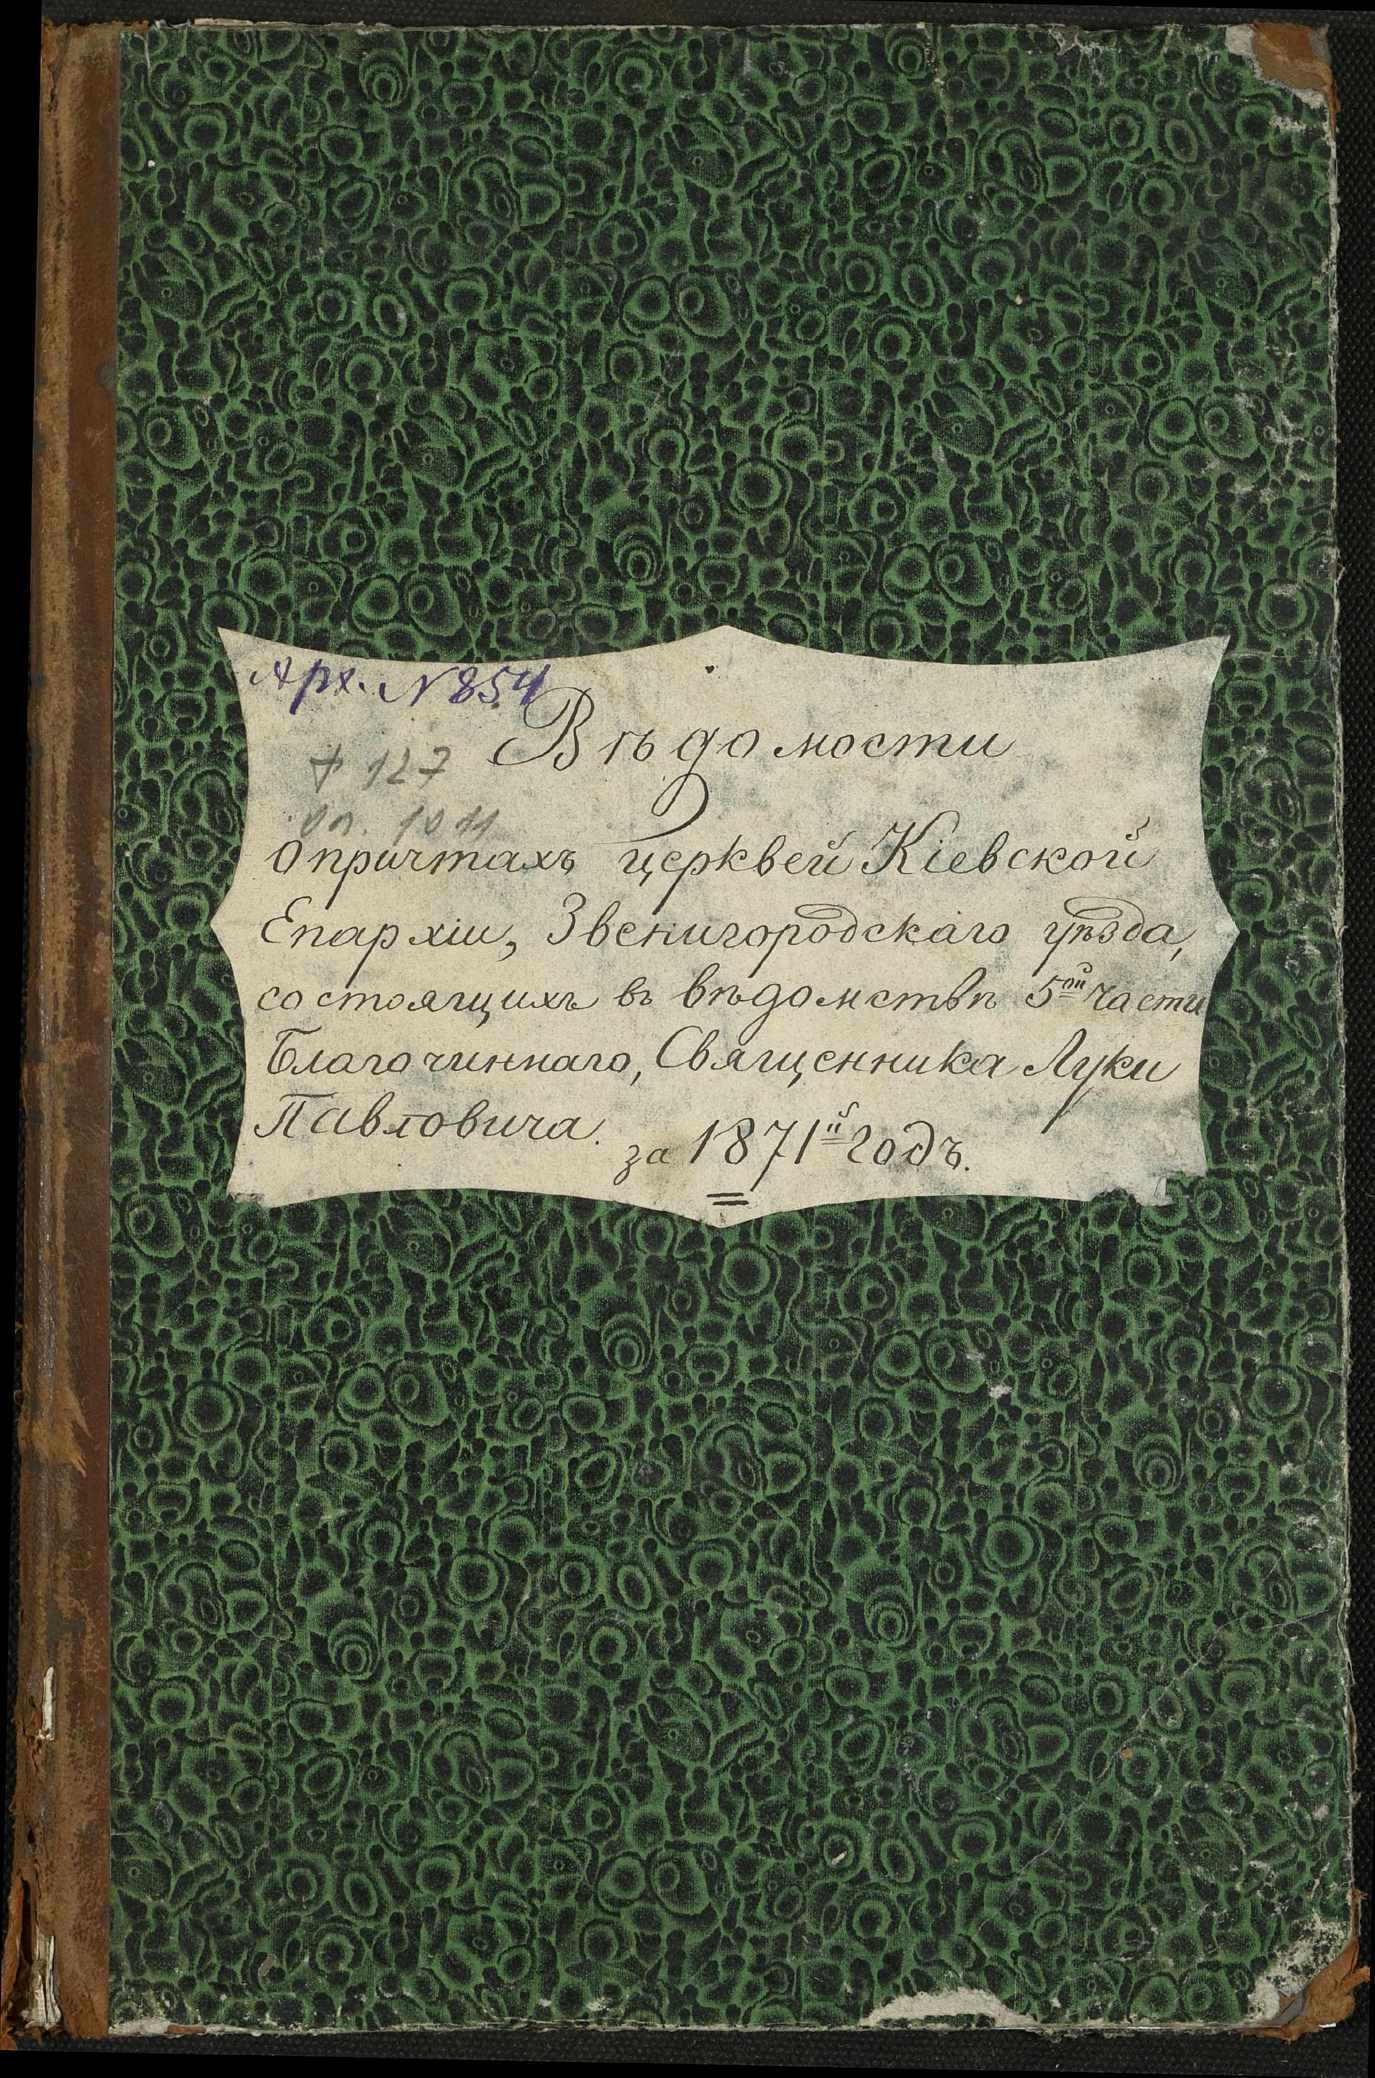 Арх. N 854
Вѣдомости
ф 127
оп. 1011
О причтахъ церквей Кіевской
Епархіи, Звенигородскаго уѣзда,
состоящихъ въ вѣдомствѣ 5ой части
Благочиннаго, Священника Луки
Павловича.
за 1871й годъ.